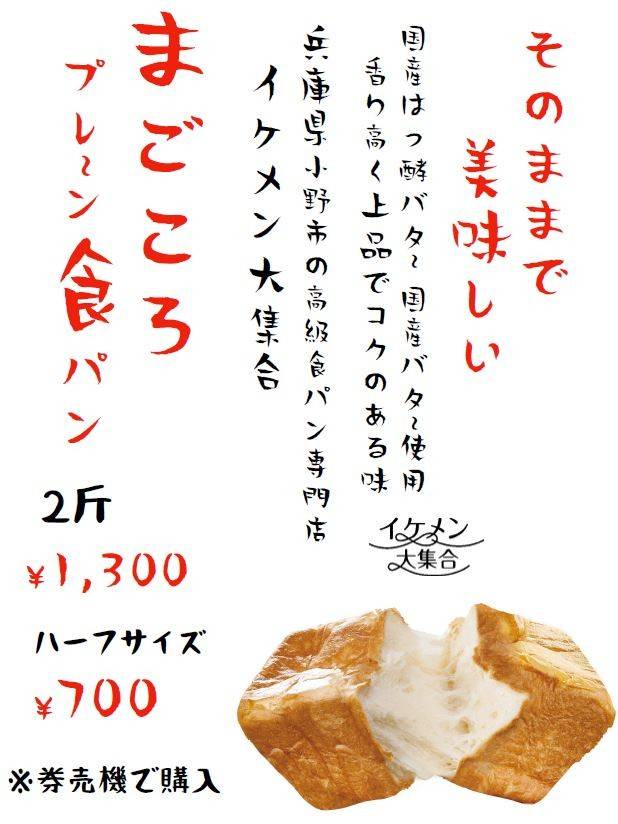 そのままで
美味しい
国産はつ酵バター国産バター使用
香り高く上品でコクのある味
兵庫県小野市の高級食パン専門店
イケメン大集合
まごころ
プレーン食パン
2斤
¥1,300
ハーフサイズ
¥700
※券売機で購入
イケメン
大集合